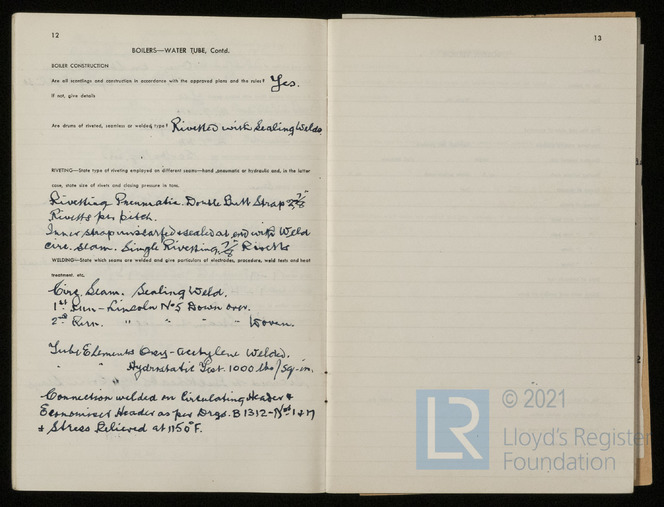 12
BOILERS—WATER TUBE, Contd.
BOILER CONSTRUCTION
Are all scantlings and construction in accordance with the approved plans and the rules? Yes.
If not, give details
Are drums of riveted, seamless or welded type? Rivetted with Sealing Welds
RIVETING—State type of riveting employed on different seams—hand, pneumatic or hydraulic and, in the latter
case, state size of rivets and closing pressure in tons.
Rivetting Pneumatic. Double Butt Strap 7/8"
Rivetts per pitch.
Inner strap scarfed & sealed at end with Weld
circ. seam. Single Rivetting, 7/8" Rivetts
WELDING—State which seams are welded and give particulars of electrodes, procedure, weld tests and heat
treatment, etc.
Circ. Seam. Sealing Weld.
1st Run - Lincoln No 5 Down over.
2nd Run. " " " " Woven.
Tube Elements Oxy-acetylene Welded.
" " Hydrostatic Test. 1000 lbs/sq-in.
Connection welded on Circulating Header &
Economiser Header as per Drgs. B1312-Nos 1 & 17
& Stress Relieved at 1150°F.
13
LR
© 2021
Lloyd's Register
Foundation